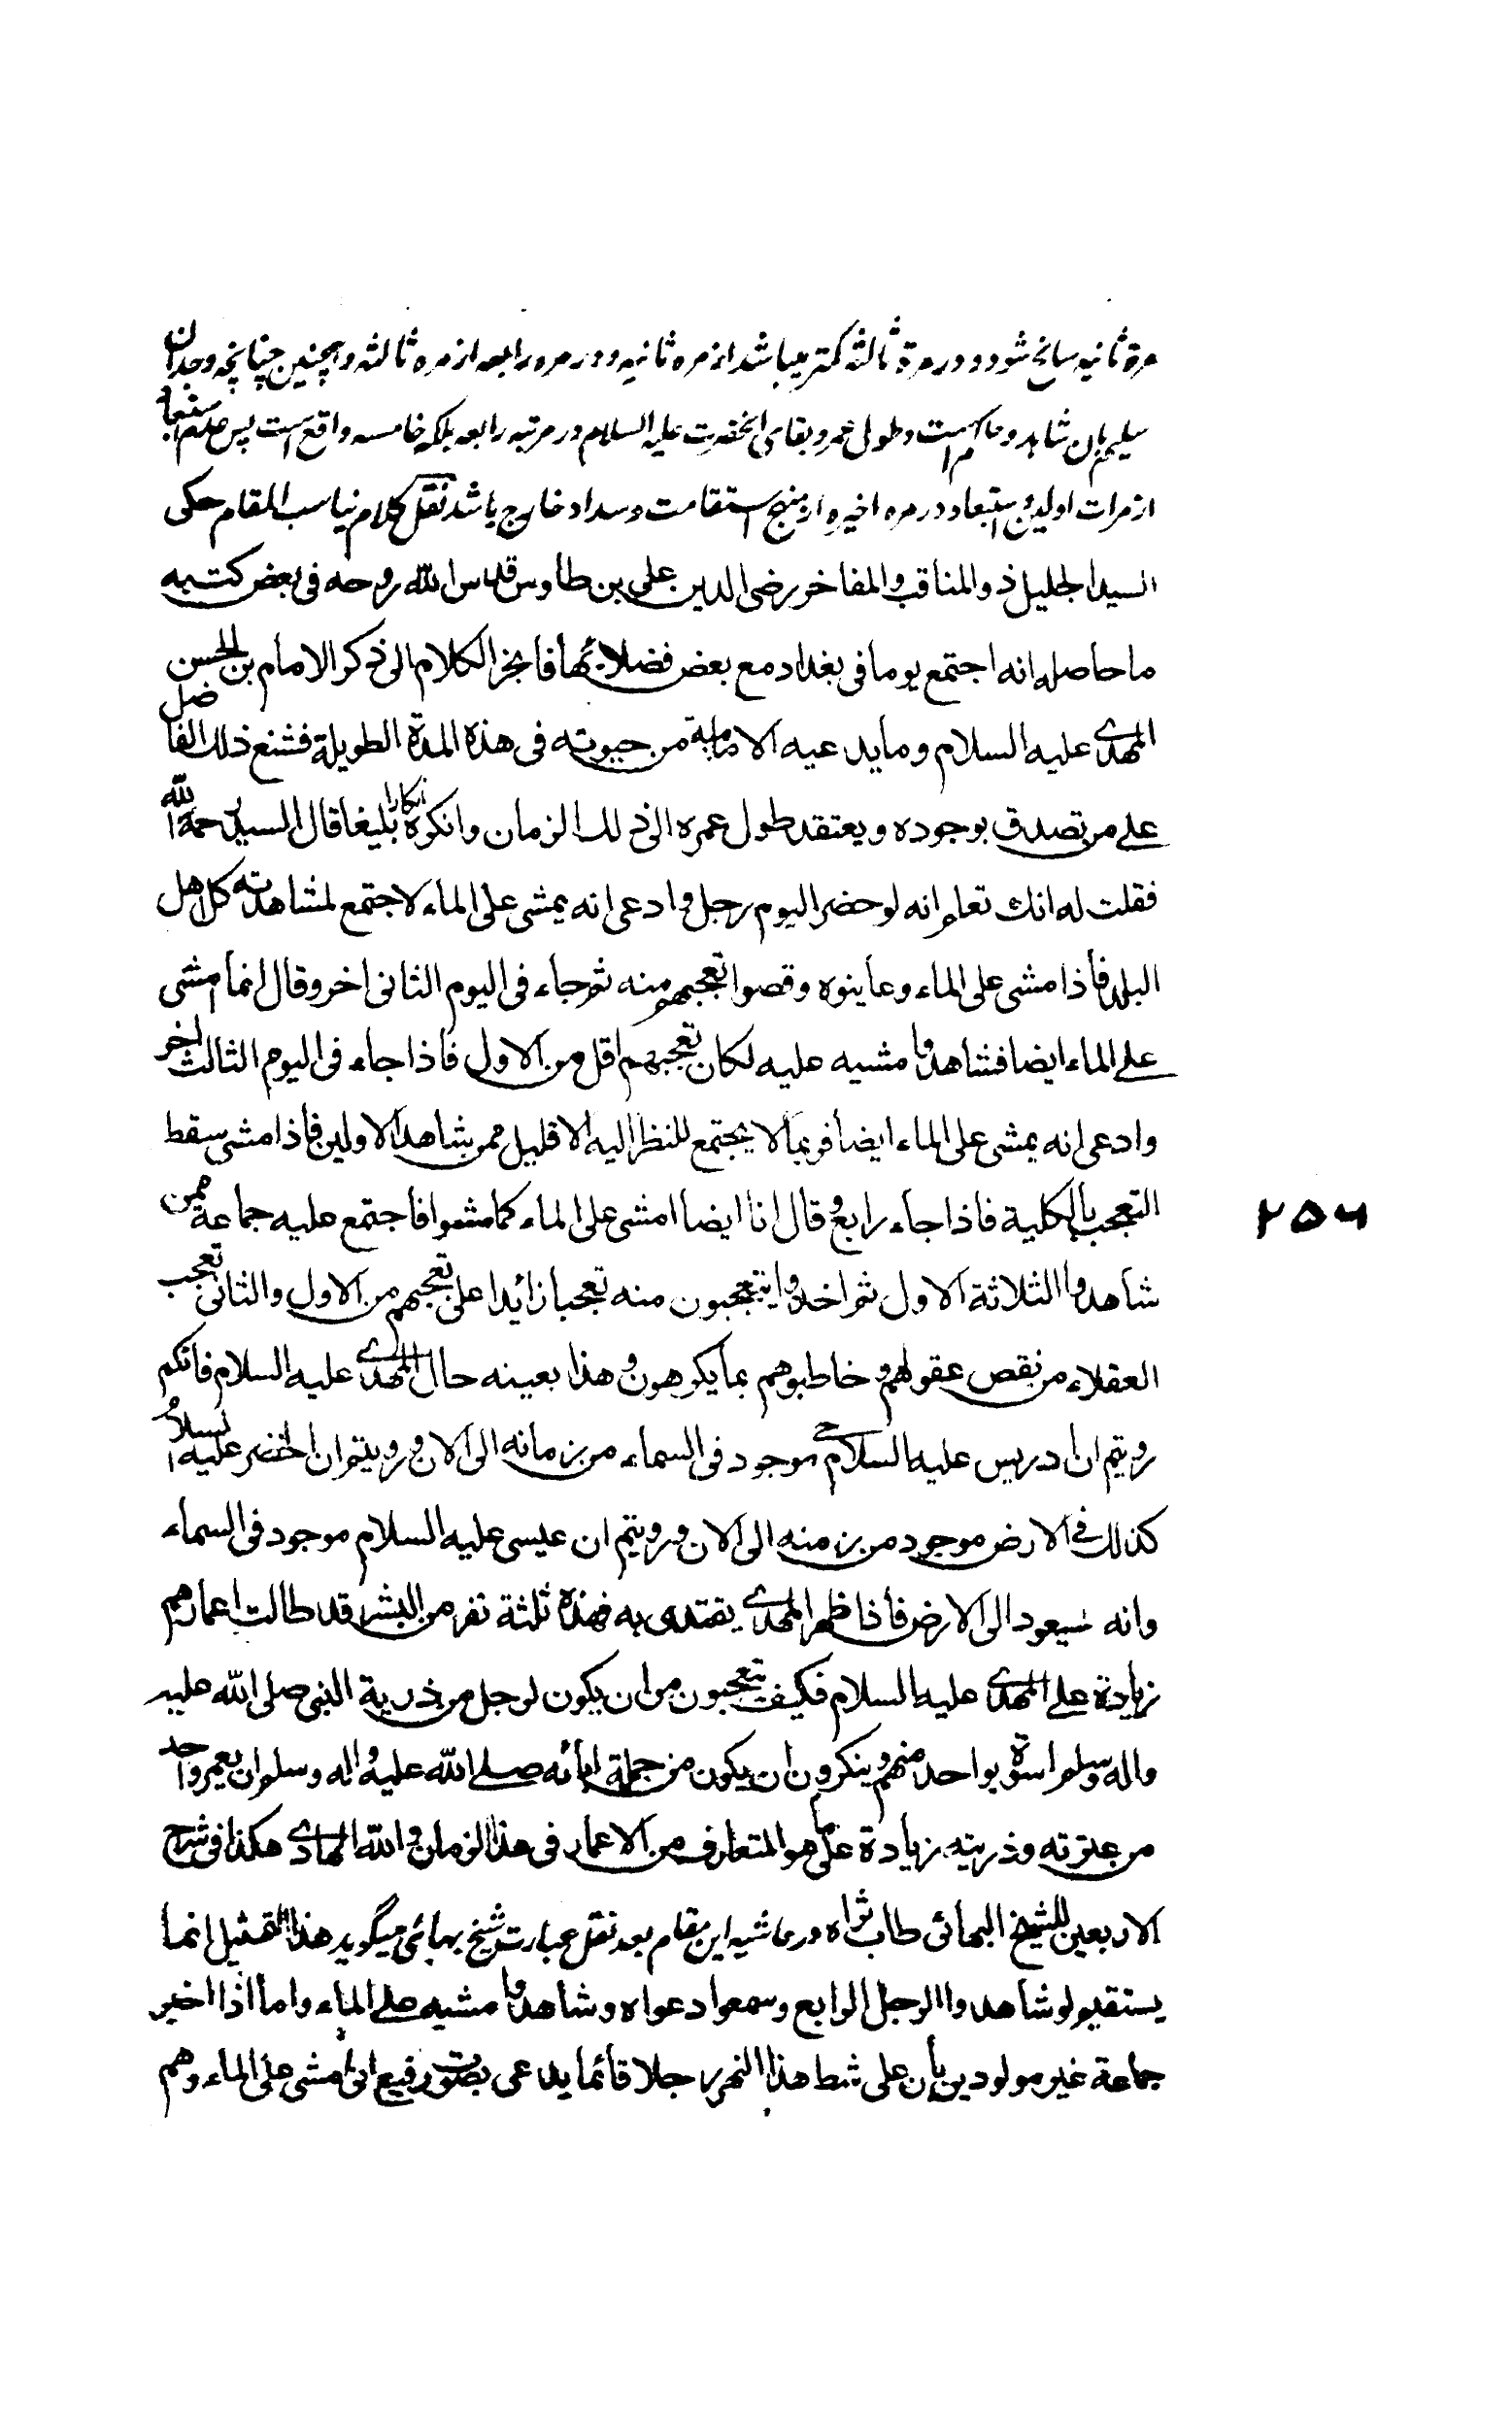 مرة ثانیه سانح شود و در مرة ثالثه کمتر میباشد از مره ثانیه و در مره رابعه از مره ثالثه و همچنین چنانچه وجدان
سلیم بان شاهد و حاکم است و طول عمر و بقای آنحضرت علیه السلام در مرتبه رابعه بلکه خامسه واقع است پس عدم استبعاد
از مرات اولیه و استبعاد در مره اخیره از منهج استقامت و سداد خارج باشد نقل کلام یناسب المقام حکی
السید الجلیل ذو المناقب والمفاخر رضی الدین علی بن طاوس قدس الله روحه فی بعض کتبه
ما حاصله انه اجتمع یوما فی بغداد مع بعض فضلائها فانجز الکلام الی ذکر الامام بن الحسن
المهدی علیه السلام وما یدعیه الامامیة من حیوته فی هذه المدة الطویلة فشنع ذلک الفاضل
علی من تصدق بوجوده ویعتقد طول عمره الی ذلک الزمان وانکره انکارا بلیغا قال السید رحمه الله
فقلت له انک تعلم انه لو حضر الیوم رجل وادعی انه یمشی علی الماء لاجتمع لمشاهدته کل اهل
البلد فاذا مشی علی الماء وعاینوه وقصوا تعجبهم منه ثم جاء فی الیوم الثانی اخر وقال انا امشی
علی الماء ایضا فشاهدوا مشیه علیه لکان تعجبهم اقل من الاول فاذا جاء فی الیوم الثالث اخر
وادعی انه یمشی علی الماء ایضا فربما لا یجتمع للنظر الیه الا قلیل ممن شاهد الاولین فاذا مشی سقط
التعجب بالکلیة فاذا جاء رابع وقال انا ایضا امشی علی الماء کما مشوا فاجتمع علیه جماعة ممن
شاهدوا الثلاثة الاول ثم اخذوا یتعجبون منه تعجبا زائدا علی تعجبهم من الاول والثانی تعجب
العقلاء من نقص عقولهم وخاطبوهم بما یکرهون وهذا بعینه حال المهدی علیه السلام فانکم
رویتم ان ادریس علیه السلام حی موجود فی السماء من زمانه الی الان ورویتم ان الخضر علیه السلام
کذلک فی الارض موجود من زمنه الی الان ورویتم ان عیسی علیه السلام موجود فی السماء
وانه سیعود الی الارض فاذا ظهر المهدی یقتدی به فهذه ثلثة نفر من البشر قد طالت اعمارهم
زیادة علی المهدی علیه السلام فکیف تتعجبون من ان یکون لرجل من ذریة النبی صلی الله علیه
واله وسلم اسوة بواحد منهم وینکرون ان یکون من جملة ایاته صلی الله علیه واله وسلم ان یعمر واحد
من عترته وذریته زیادة علی ما هو المتعارف من الاعمار فی هذا الزمان والله الهادی هکذا فی شرح
الاربعین للشیخ البهائی طاب ثراه و در حاشیه این مقام بعد نقل عبارت شیخ بهائی میگوید هذا التمثیل انما
یستقیم لو شاهدوا الرجل الرابع وسمعوا دعواه وشاهدوا مشیه علی الماء واما اذا اخبر
جماعة غیر مولودین بأن علی شط هذا النهر رجلا قائما یدعی بصوت رفیع انی امشی علی الماء وهم
۲۵۶